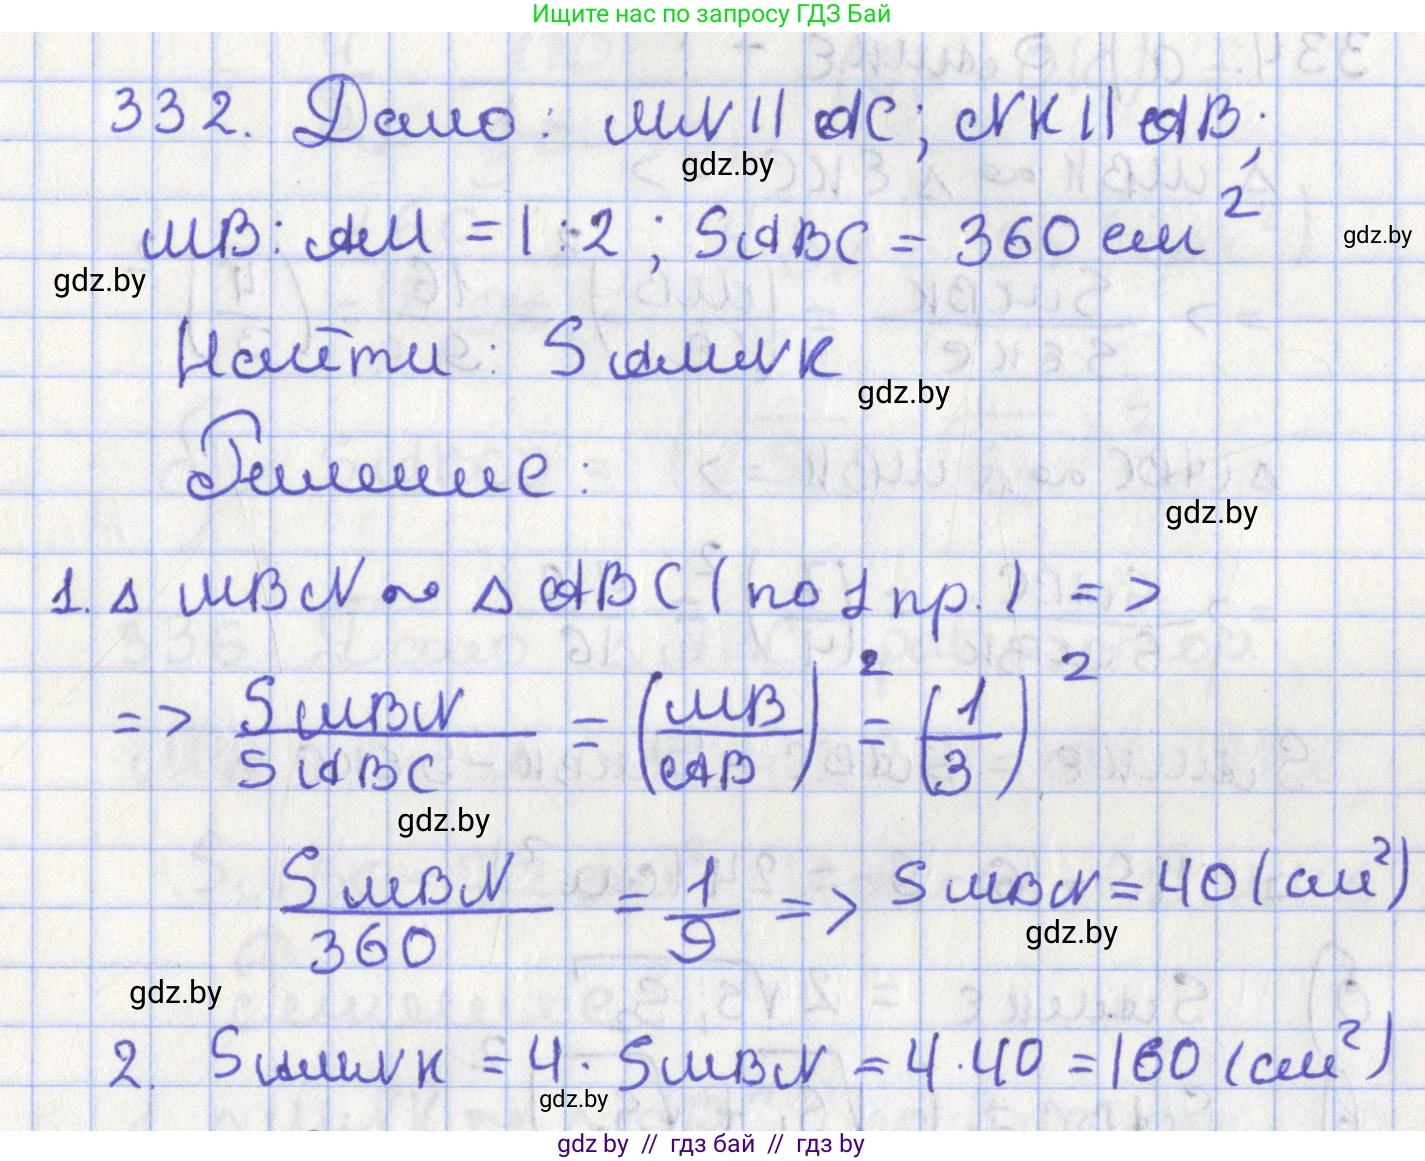 Ищите нас по запросу ГДЗ Бай
332. Дано: MN || AC; NK || AB;
gdz.by
MB : AM = 1 : 2; SABC = 360 см²
gdz.by
gdz.by
Найти: SAMNK
gdz.by
Решение:
gdz.by
1. Δ MBN ~ Δ ABC (по 1 пр.) =>
=> SMBN / SABC = (MB / AB)² = (1 / 3)²
gdz.by
SMBN / 360 = 1 / 9 => SMBN = 40 (см²)
gdz.by
gdz.by
2. SAMNK = 4 · SMBN = 4 · 40 = 160 (см²)
gdz.by
gdz.by // гдз бай // гдз by